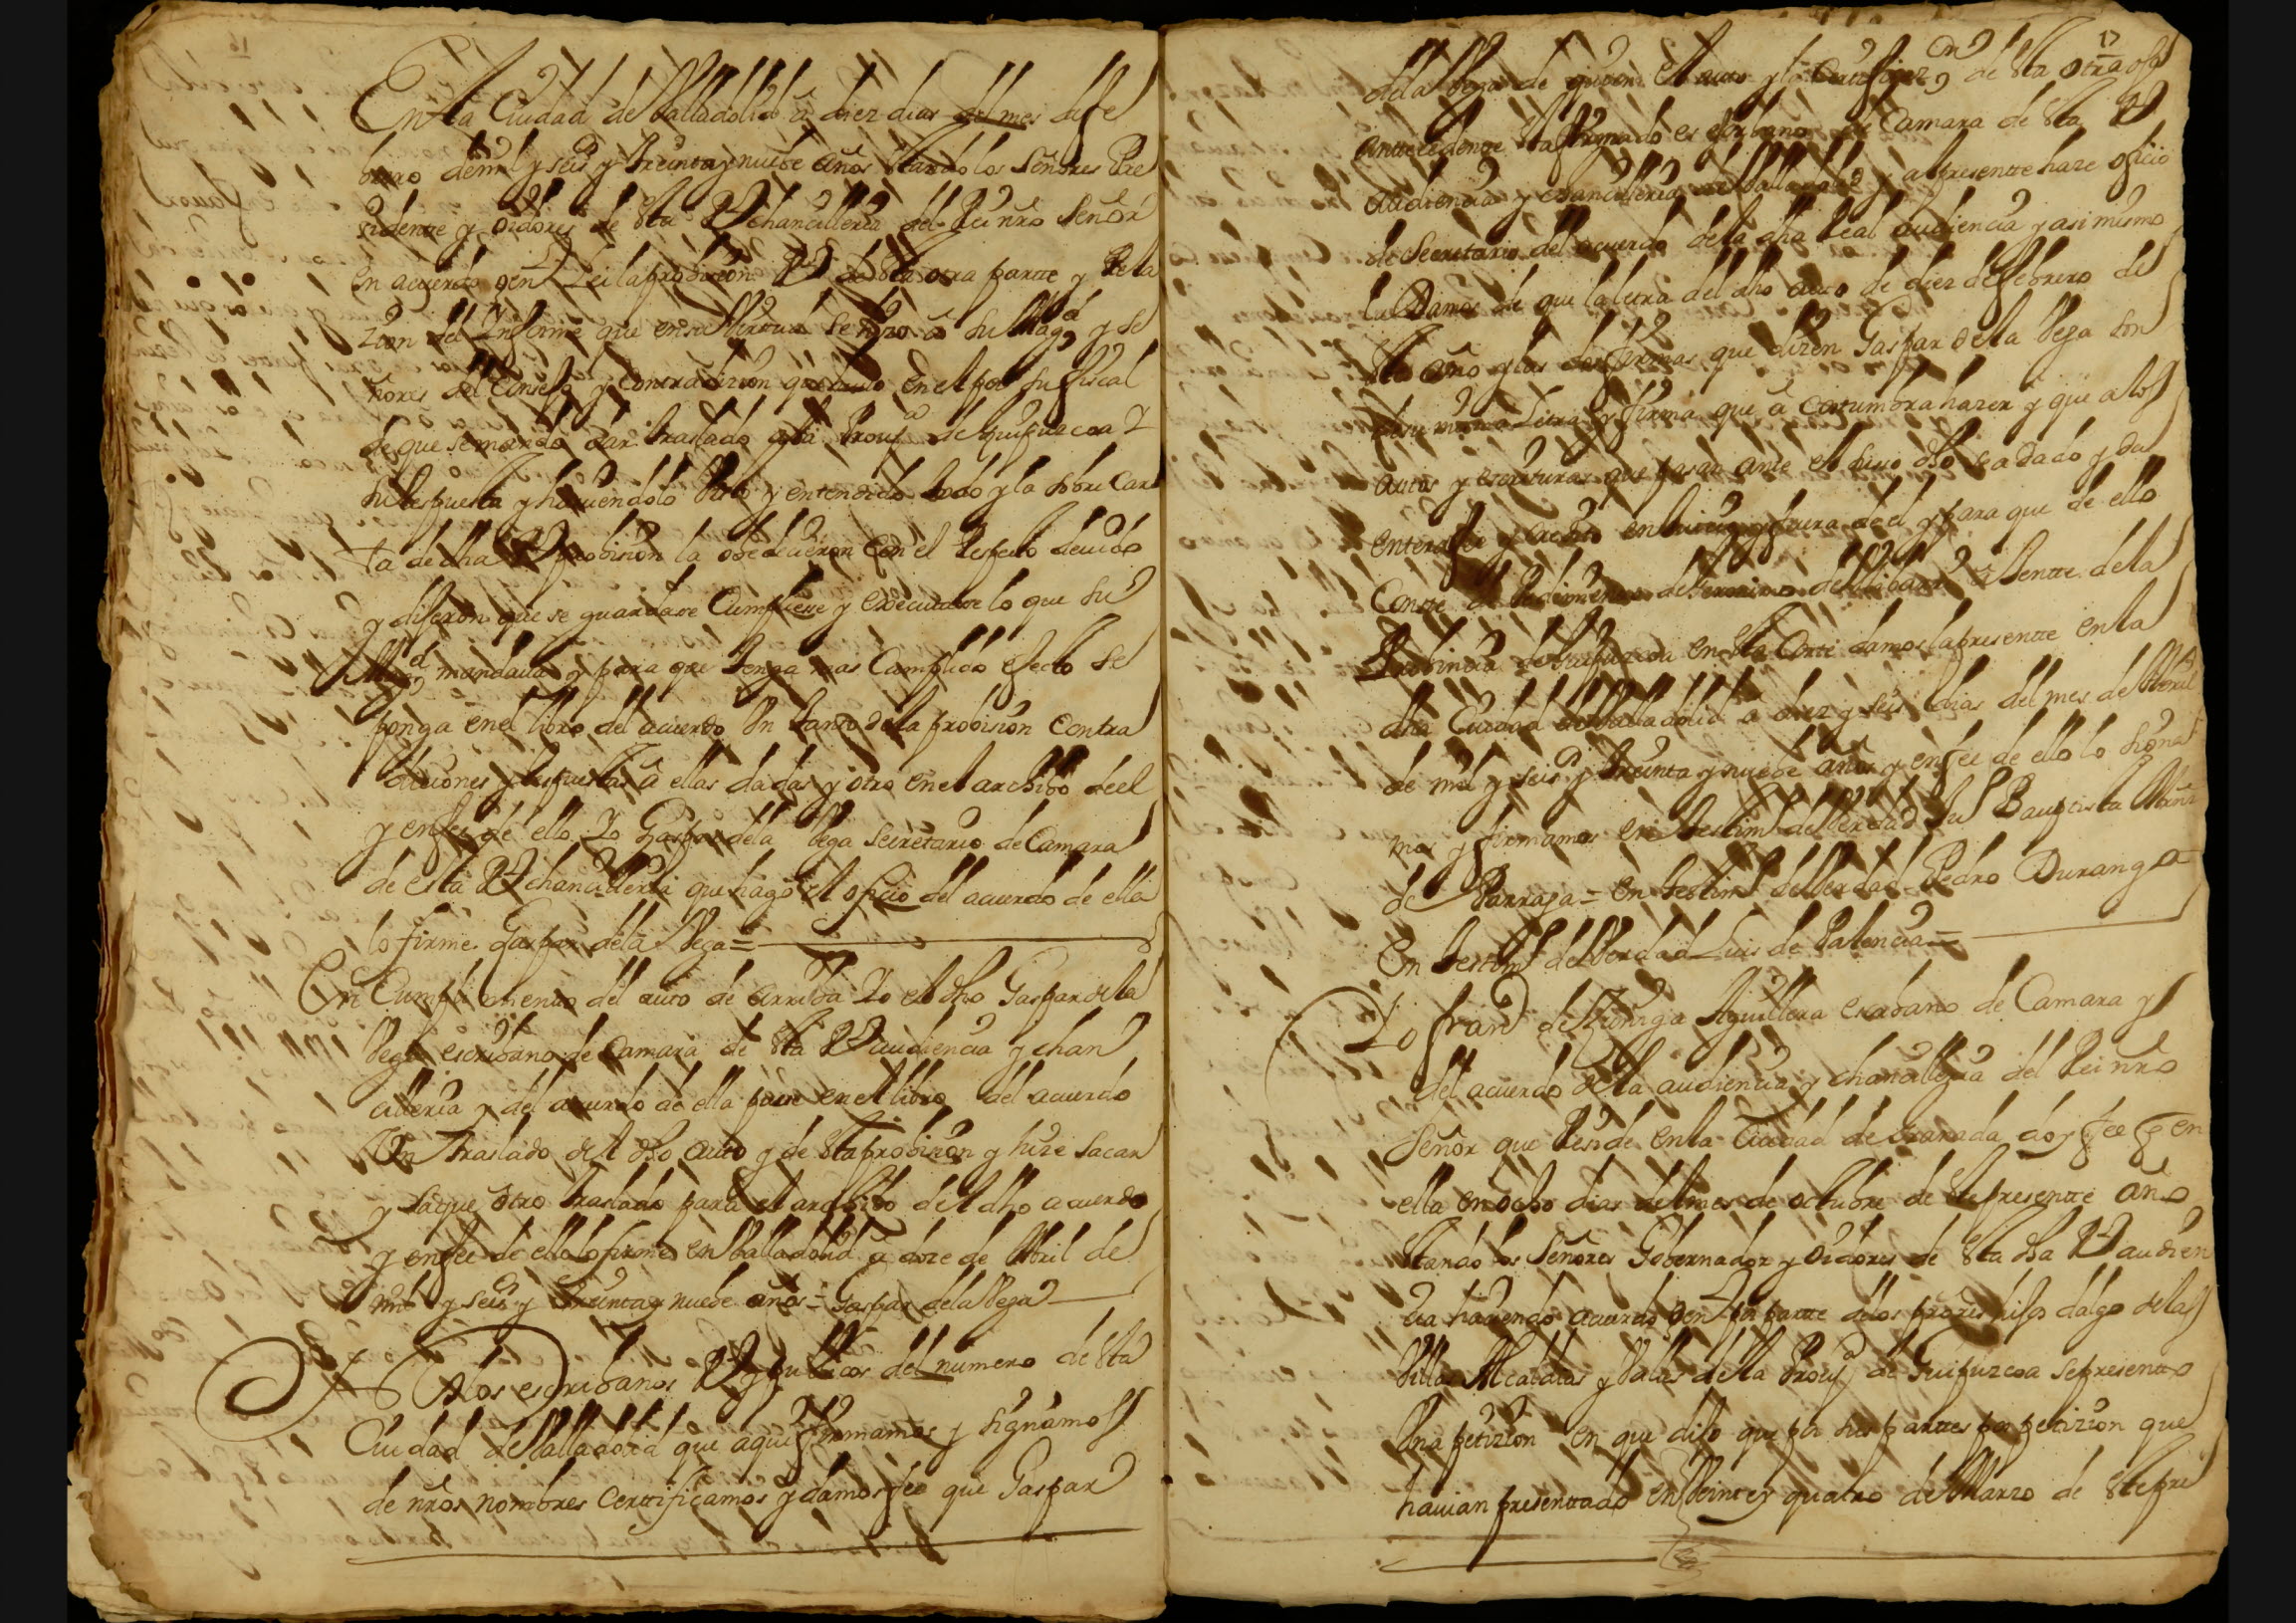 En la Ciudad de Valladolid à diez dias del mes de fe
brero de mil y seisº y treinta y nuebe años estando los señores Pre
sidente y oidores de esta Rl chancilleria del Rei nrō Señor
en acuerdo genl Lei la probision Rl de esta otra partte y Rela
zion del Informe que en su Virtud se hizo â su Magd y se
ñores del Consejo y contradizion que hizo en el por su fiscal
de que se mando dar traslado a la Prouª de Guipuzcoa Y
su Respuesta y hauiendolo Visto y entendido todo y la sobre Car
ta de dha Rl probision la obedecieron con el Respecto deuido
y dijeron que se guardase Cumpliese y executase lo que su
Magd mandaua y para que tenga mas Cumplido efecto se
ponga en el libro del acuerdo Un tanto de la probision Contra
diciones y Respuestas â ellas dadas y otro en el archibo de el
y en fee de ello Yo Gaspar de la Vega Secretario de Camara
de esta Rl chancilleria que hago el oficio del acuerdo de ella
lo firme Gaspar de la Vega =
En Cumplimiento del auto de arriba Yo el dho Gaspar de la
Vega escribano de Camara de esta Rl audiencia y chan
cilleria y del acuerdo de ella puse en el libro del acuerdo
Un traslado del dho auto y de esta probision y hize sacar
y saque otro traslado para el archibo del dho acuerdo
y en fee de ello lo firme en Valladolid â doze de Abril de
mil y seisº y treinta y nuebe años = Gaspar de la Vega
Nos escribanos Rl y publicos del numero de esta
Ciudad de Valladolid que aqui firmamos y signamos
de nrōs nombres certtificamos y damos fee que Gaspar
17
de la Vega de quien el auto y la Certtificazon de esta otra oja
anttecedente esta firmado es escribano de Camara de esta Rl
audiencia y chancilleria de Valladolid y al presente haze oficio
de Secretario del acuerdo de la dha Real audiencia y asi mismo
la Damos de que la letra del dho auto de diez de febrero de
este año y las dos firmas que dizen Gaspar de la Vega son
de su misma Letra y firma que â Costumbra hazer y que a los
autos y escrituras que pasan ante el suso dho se a dado y da
entera fee y credito en juicio y fuera de el y para que de ello
Conste de Pedimiento de Geronimo de ajente de la
Probincia de Guipuzcoa en esta Corte damos la presentte en la
dha Ciudad de Valladolid â diez y seis dias del mes de Abril
de mil y seisº y treinta y nuebe años y en fee de ello lo signa
mos y firmamos en testimº de Verdad Juº Bauptista Muñz
de Parraga = en testimº de Verdad Pedro Durango
En testimº de Verdad Luis de Palencia =
Yo franco de Zuniga Aguillera escribano de Camara y
del acuerdo de la audiencia y chancilleria del Rei nrō
Señor que Reside en la Ciudad de Granada doy fee q en
ella en ocho dias del mes de octubre de este presentte año
estando los señores Gobernador y oidores de esta dha Rl audien
cia haciendo acuerdo genl por partte de los procres hijos dalgo de las
Villas Alcaldias y Valles de la Prouª de Guipuzcoa se presento
Una petizion en que dijo que por sus parttes por petizion que
hauian presenttado en Veinte y quatro de Marzo de este pre